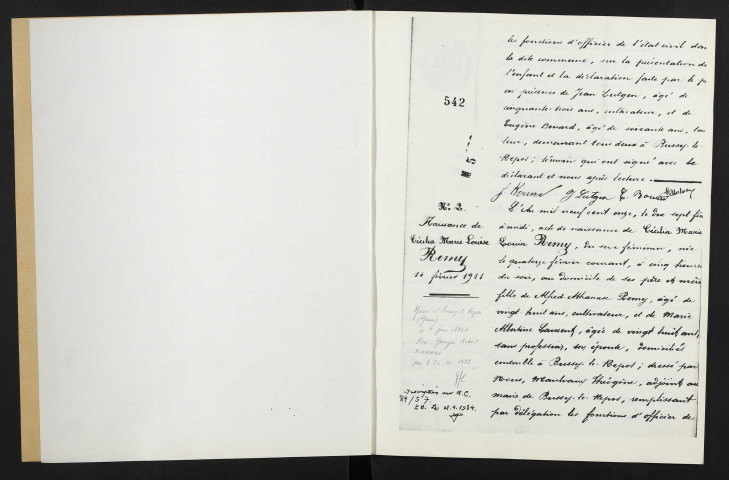 les fonctions d'officier de l'état civil dan
la dite commune, sur la présentation de
l'enfant et la déclaration faite par le p
en présence de Jean Lutgen, âgé de
cinquante-trois ans, cultivateur, et de
Eugène Bouard, âgé de soixante ans,
demeurant tous deux à Bussy-le-
Repos; témoins qui ont signé avec le
déclarant et nous après lecture.
J. Lutgen E. Bouard
542
N°. 2.
Naissance de
Cécilia Marie Louise
Remy
14 février 1911
L'An mil neuf cent onze, le dix sept fév
à midi, acte de naissance de Cécilia Marie
Louise Remy, du sexe féminin, née
le quatorze février courant, à cinq heures
du soir, au domicile de ses père et mère
fille de Alfred Athanase Remy, âgé de
vingt huit ans, cultivateur, et de Marie
Laurent, âgée de vingt huit ans,
sans profession, son épouse, domiciliés
ensemble à Bussy-le-Repos; dressé par
Nous, adjoint au
maire de Bussy-le-Repos, remplissant
par délégation les fonctions d'officier de